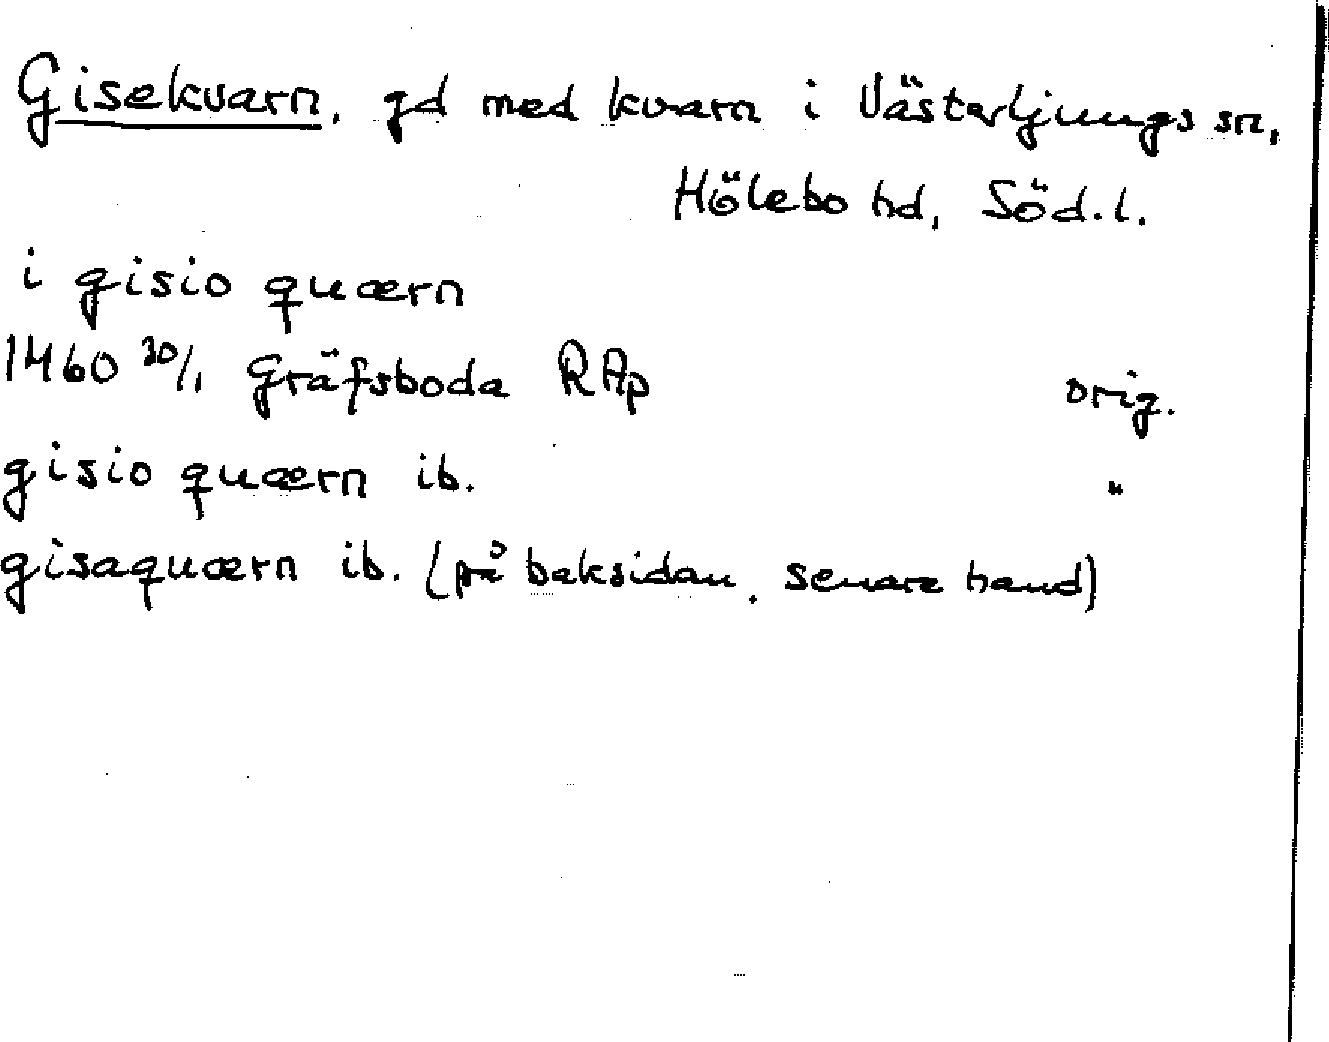 Gisekvarn, gd med kvarn i Västerljungs sn,
Hölebo hd, Söd.l.
i gisio quærn
1460 30/1 Gräfsboda RAp orig.
gisio quærn ib. "
gisaquærn ib. (på baksidan, senare hand)